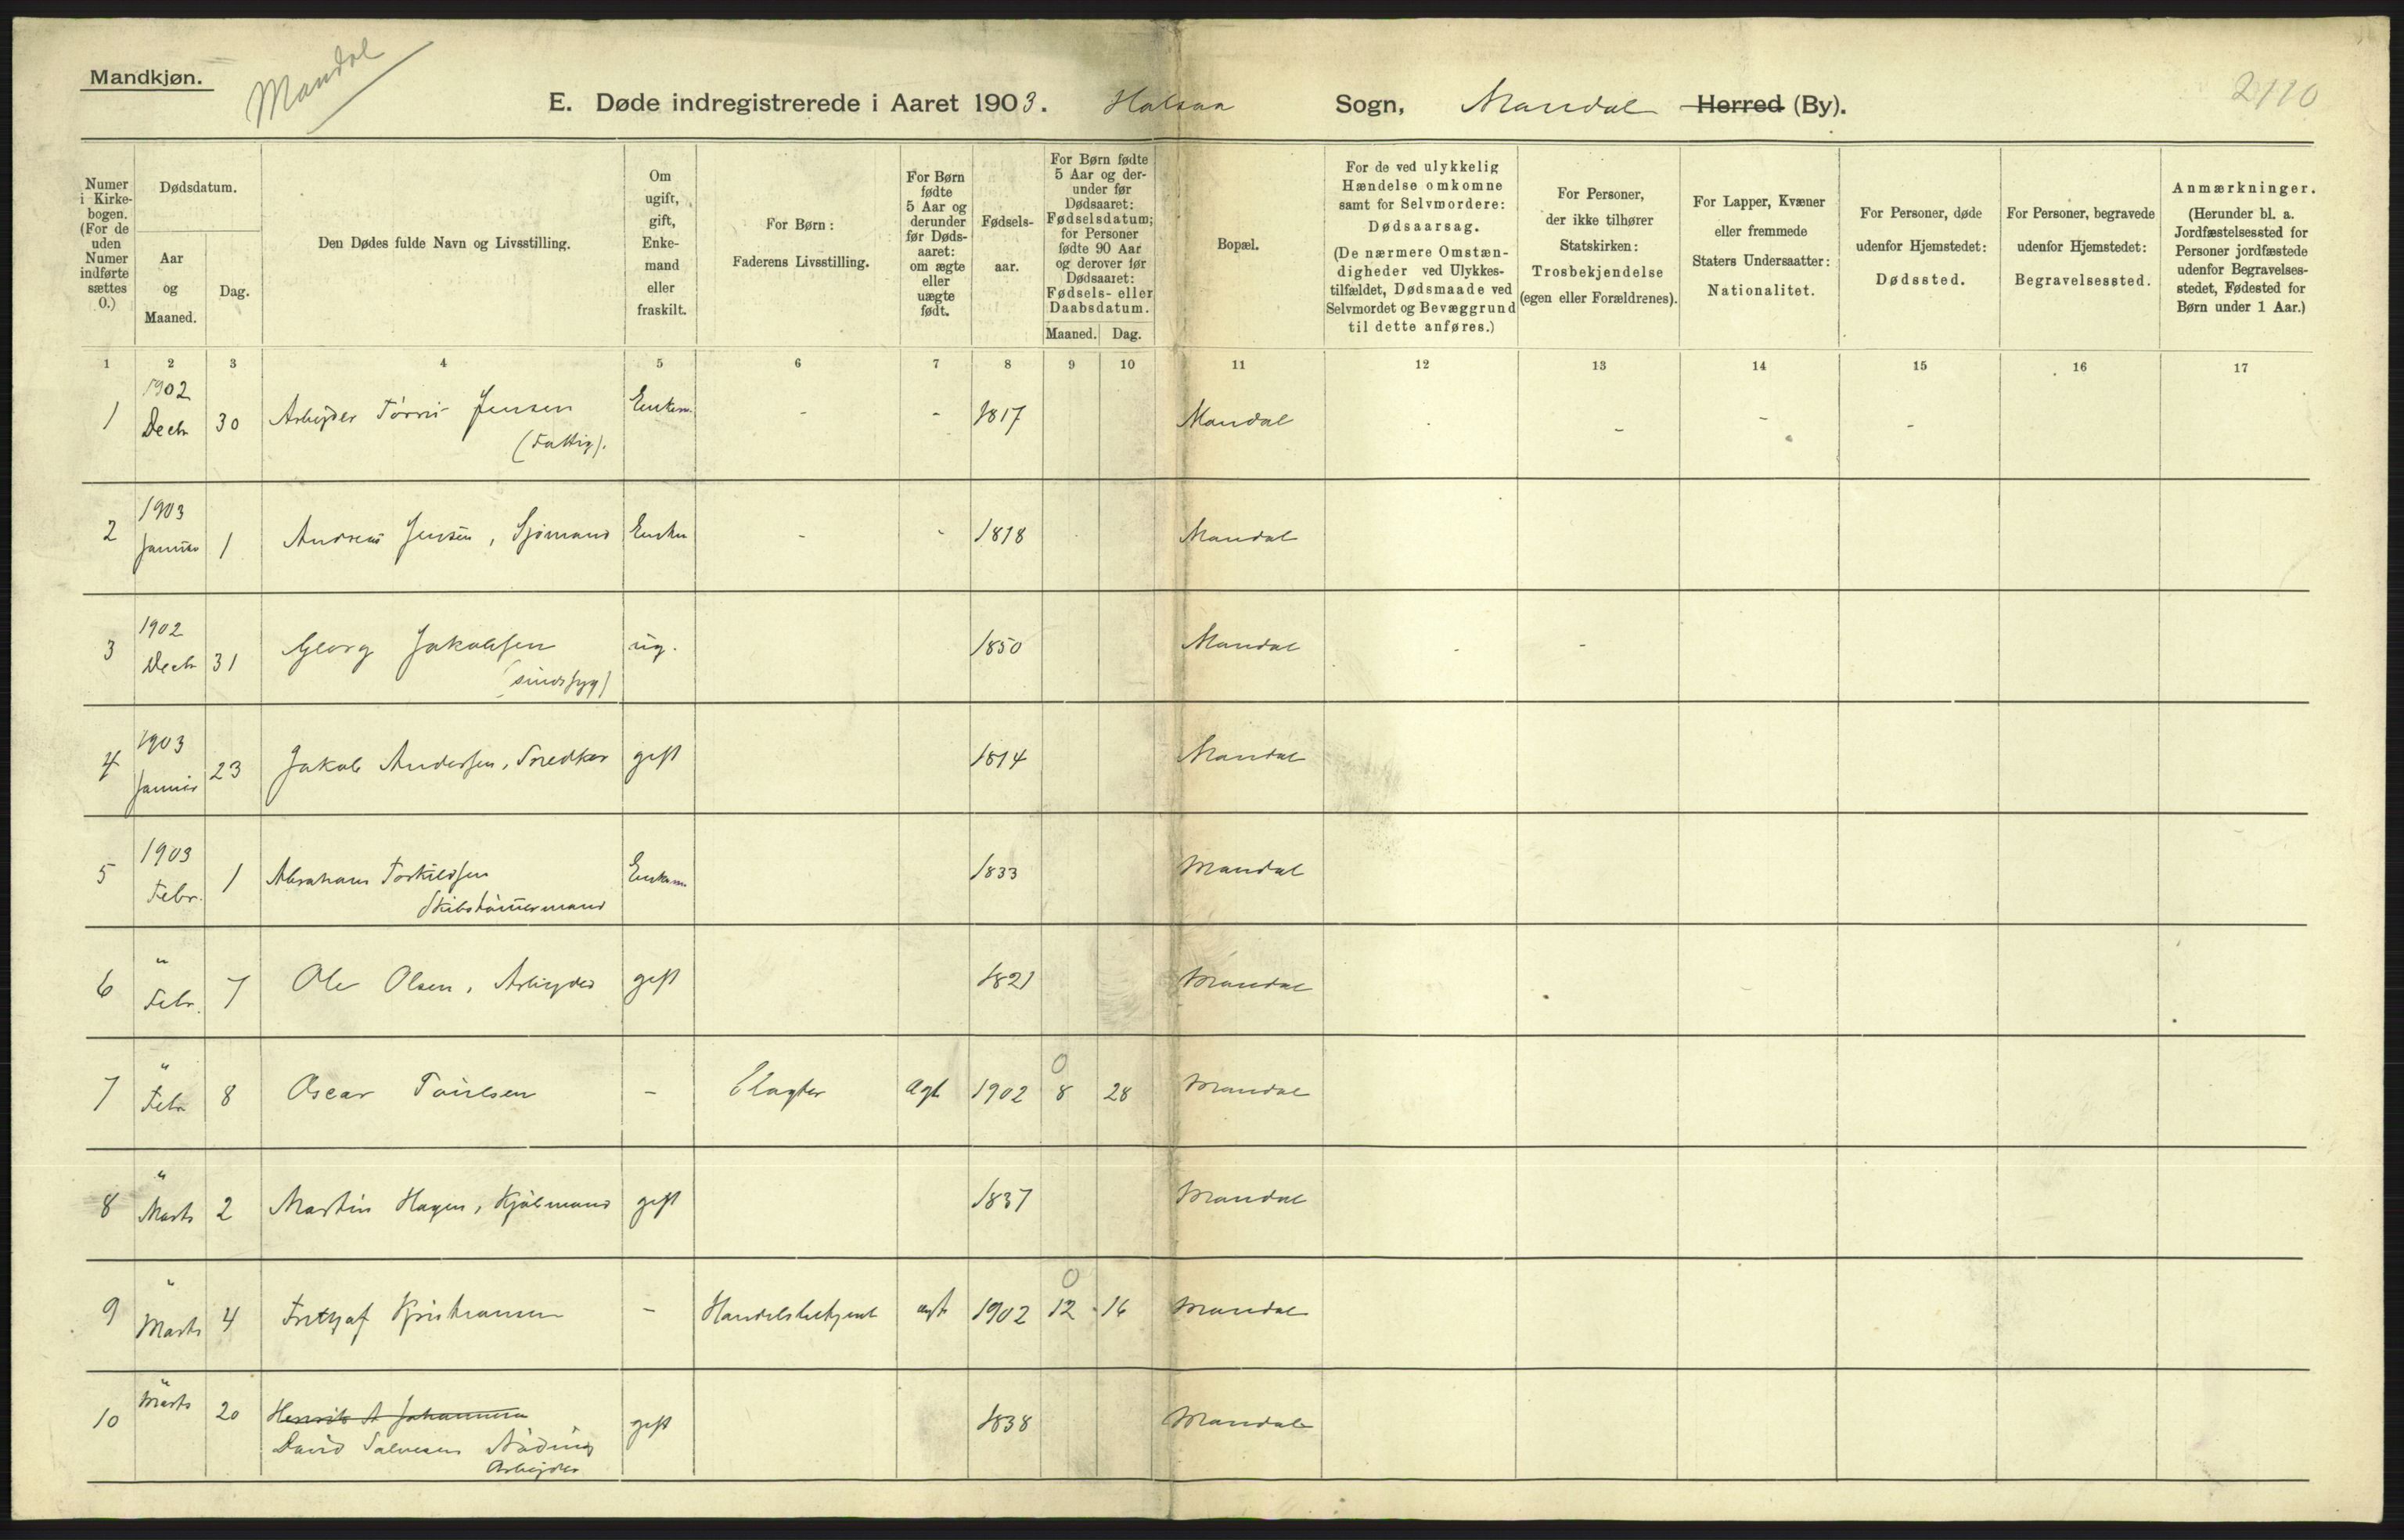 Mandkjøn.
Mandal
E. Døde indregistrerede i Aaret 1903. Halsaa Sogn, Mandal Herred (By).
2110
Numer i Kirkebogen. (For de uden Numer indførte sættes 0.)
Dødsdatum.
Aar og Maaned.
Dag.
Den Dødes fulde Navn og Livsstilling.
Om ugift, gift, Enkemand eller fraskilt.
For Børn: Faderens Livsstilling.
For Børn fødte 5 Aar og derunder før Dødsaaret: om ægte eller uægte født.
Fødselsaar.
For Børn fødte 5 Aar og derunder før Dødsaaret: Fødselsdatum; for Personer fødte 90 Aar og derover før Dødsaaret: Fødsels- eller Daabsdatum.
Maaned. Dag.
Bopæl.
For de ved ulykkelig Hændelse omkomne samt for Selvmordere: Dødsaarsag. (De nærmere Omstændigheder ved Ulykkestilfældet, Dødsmaade ved Selvmordet og Bevæggrund til dette anføres.)
For Personer, der ikke tilhører Statskirken: Trosbekjendelse (egen eller Forældrenes).
For Lapper, Kvæner eller fremmede Staters Undersaatter: Nationalitet.
For Personer, døde udenfor Hjemstedet: Dødssted.
For Personer, begravede udenfor Hjemstedet: Begravelsessted.
Anmærkninger. (Herunder bl. a. Jordfæstelsessted for Personer jordfæstede udenfor Begravelsesstedet, Fødested for Børn under 1 Aar.)
1 2 3 4 5 6 7 8 9 10 11 12 13 14 15 16 17
1 1902 Decb 30 Arbejder Tørris Jensen Enkem. - - 1817 Mandal - - - -
(Fattig).
2 1903 Januar 1 Andreas Jensen, Sjømand Enkem - - 1818 Mandal
3 1902 Decb 31 Georg Jakobsen ug. 1850 Mandal - -
(sindssyg)
4 1903 Januar 23 Jakob Andersen, Snedker gift 1814 Mandal
5 1903 Febr. 1 Abraham Torkildsen Enkem. 1833 Mandal
Skibstømmermand
6 " Febr. 7 Ole Olsen, Arbejder gift 1821 Mandal
7 " Febr 8 Oscar Poulsen - Slagter Ægte 1902 0 8 28 Mandal
8 " Marts 2 Martin Hagen, Kjøbmand gift 1837 Mandal
9 " Marts 4 Fritjaf Kristiansen - Handelsbetjent ægte 1902 0 12 16 Mandal
10 " Marts 20 Henrik A Johannesen gift 1838 Mandal
David Salvesen Nøding
Arbejder